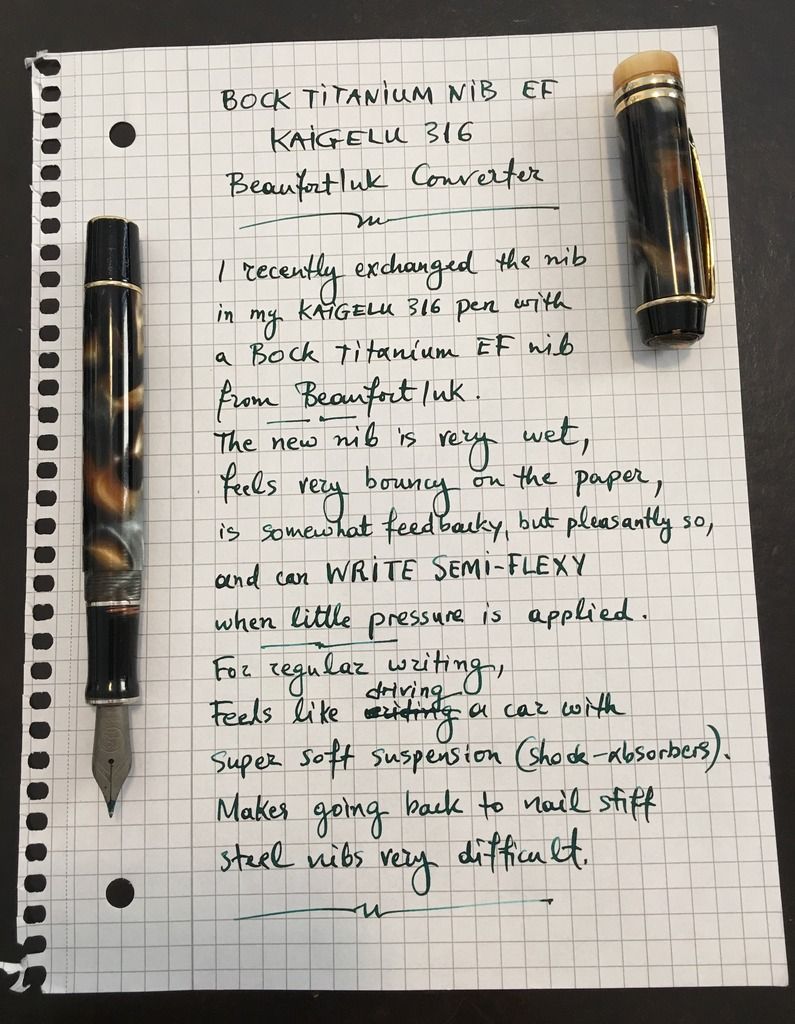 BOCK TITANIUM NIB EF
KAIGELU 316
Beaufort Ink Converter
I recently exchanged the nib
in my KAIGELU 316 pen with
a Bock Titanium EF nib
from Beaufort Ink.
The new nib is very wet,
feels very bouncy on the paper,
is somewhat feedbacky, but pleasantly so,
and can WRITE SEMI-FLEXY
when little pressure is applied.
For regular writing,
driving
Feels like a car with
super soft suspension (shock-absorbers).
Makes going back to nail stiff
steel nibs very difficult.